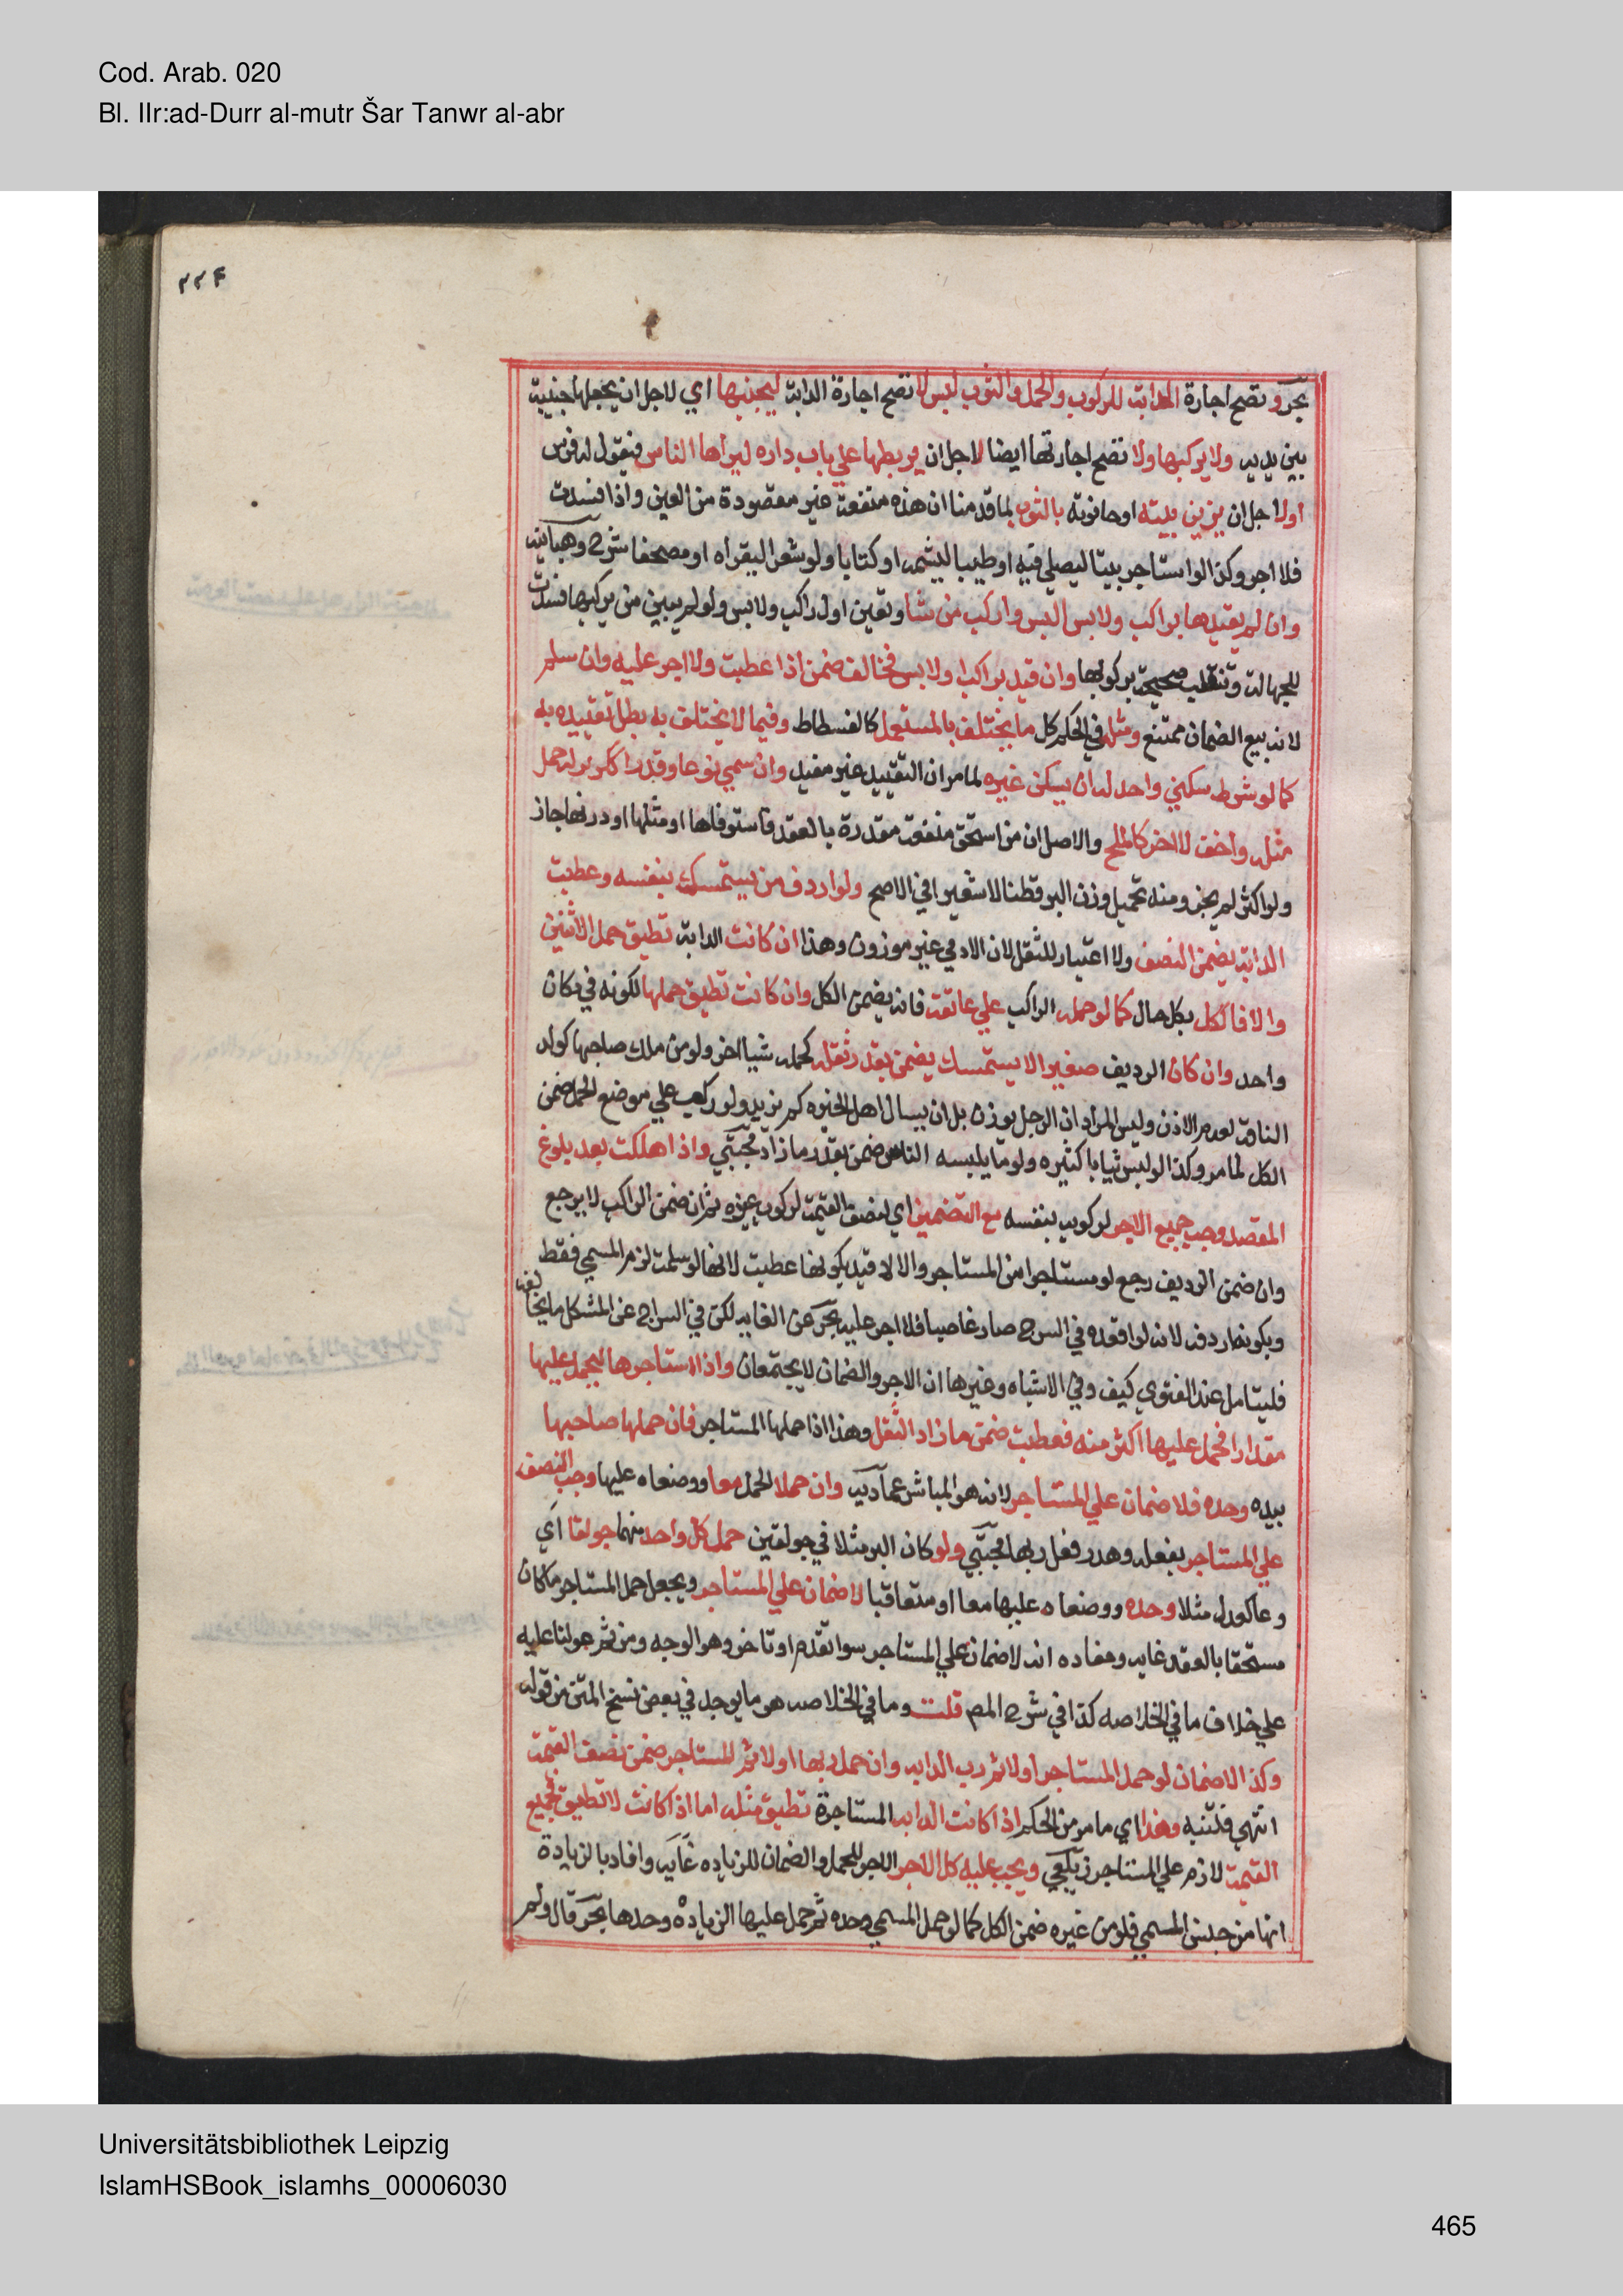 Cod. Arab. 020
Bl. IIr:ad-Durr al-mutr Šar Tanwr al-abr
٢٢٤
بحر وتصح اجارة الدابة للركوب والحمل والثوب للبس لا تصح اجارة الدابة ليجنبها اي لاجل ان يجعلها جنيبة
بين يديه ولا يركبها ولا تصح اجارتها ايضا لاجل ان يربطها علي باب داره ليراها الناس فيقول له فرس
اولا جل ان يزين بيته او حانوته بالثوب لما قدمنا ان هذه منفعة غير مقصودة من العين واذا فسدت
فلا اجر وكذا لو استاجر بيتا ليصلي فيه او طيبا ليشمه او كتابا ولو شعرا ليقراه او مصحفا شرح وهبانيه
وان لم يقيدها براكب ولابس البس واركب من شا وتعين اول راكب ولابس ولو لم يبين من يركبها فسدت
للجهالة وتنقلب صحيحة بركوبها وان قيد براكب او لابس فخالف ضمن اذا عطبت ولا اجر عليه وان سلم
لانه بيع الضمان ممتنع ومثله في الحكم كل ما يختلف بالمستعمل كالفسطاط وفيما لا يختلف به بطل تقييده به
كما لو شرط سكني واحد له ان يسكن غيره لما مر ان التقييد غير مفيد وان سمي نوعا وقدرا ككر بر له حمل
مثله واخف لا اخر كالملح والاصل ان من استحق منفعة مقدرة بالعقد فاستوفاها او مثلها او دونها جاز
ولو اكثر لم يجز ومنه تحميل وزن البر قطنا لا شعيرا في الاصح ولو اردف من يستمسك بنفسه وعطبت
الدابة يضمن النصف ولا اعتبار للثقل لان الادمي غير موزون وهذا ان كانت الدابة تطيق حمل الاثنين
والا فالكل بكل حال كما لو حمله الراكب علي عاتقه فانه يضمن الكل وان كانت تطيق حملها لكونه في مكان
واحد وان كان الرديف صغيرا لا يستمسك يضمن بقدر ثقله كحمله شيا اخر ولو من ملك صاحبها كولد
الناقة لعدم الاذن وليس المراد ان الرجل يوزن بل ان يسال اهل الخبره كم يزيد ولو ركب علي موضع الحمل ضمن
الكل لما مر وكذا لو لبس ثيابا كثيره ولو ما يلبسه الناس ضمن بقدر ما زاد مجتبي واذا هلكت بعد بلوغ
المقصد وجب جميع الاجر لركوبه بنفسه مع التضمين اي لنصف القيمة لركوب غيره ثم ان ضمن الراكب لا يرجع
وان ضمن الرديف رجع لو مستاجرا من المستاجر والا لا قيد بكونها عطبت لانها لو سلمت لزم المسمي فقط
وبكونه اردف لانه لو اقعده في السرج صار غاصبا فلا اجر عليه بحر عن الغايه لكن في السراج عن المشكل ما يخالفه
فليتامل عند الفتوي كيف وفي الاشباه وغيرها ان الاجر والضمان لا يجتمعان واذا استاجرها ليحمل عليها
مقدارا فحمل عليها اكثر منه فعطبت ضمن ما زاد الثقل وهذا اذا حملها المستاجر فان حملها صاحبها
بيده وحده فلا ضمان علي المستاجر لانه هو المباشر عماديه وان حملا الحمل معا ووضعاه عليها وجب النصف
علي المستاجر بفعله وهدر فعل ربها مجتبي ولو كان البر مثلا في جولقين حمل كل واحد منهما جولقا اي
وعا كعدل مثلا وحده ووضعاه عليها معا او متعاقبا لا ضمان علي المستاجر ويجعل حمل المستاجر ما كان
مستحقا بالعقد غايه ومفاده انه لا ضمان علي المستاجر سوا تقدم او تاخر وهو الوجه ومن ثم عولنا عليه
علي خلاف ما في الخلاصه كذا في شرح المص قلت وما في الخلاصه هو ما يوجد في بعض نسخ المتن من قوله
وكذا لا ضمان لو حمل المستاجر اولا ثم رب الدابه وان حمل ربها اولا ثم المستاجر ضمن نصف القيمة
انتهي فتنبه وهذا اي ما مر من الحكم اذا كانت الدابه المستاجرة تطيق مثله اما اذا كانت لا تطيق فجميع
القيمة لازم علي المستاجر زيلعي ويجب عليه كل الاجر الاجر للحمل والضمان للزياده غايه وافاد بالزيادة
انها من جنس المسمي فلو من غيره ضمن الكل كما لو حمل المسمي وحده ثم حمل عليها الزيادة وحدها بحر قال ولم
Universitätsbibliothek Leipzig
IslamHSBook_islamhs_00006030
465